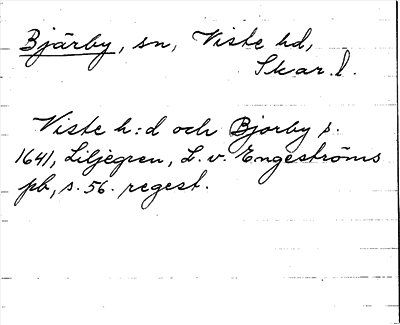 Bjärby, sn, Viste hd,
Skar. l.
Viste h:d och Bjorby s.
1641, Liljegren, L. v. Engeströms
pb, s. 56. regest.